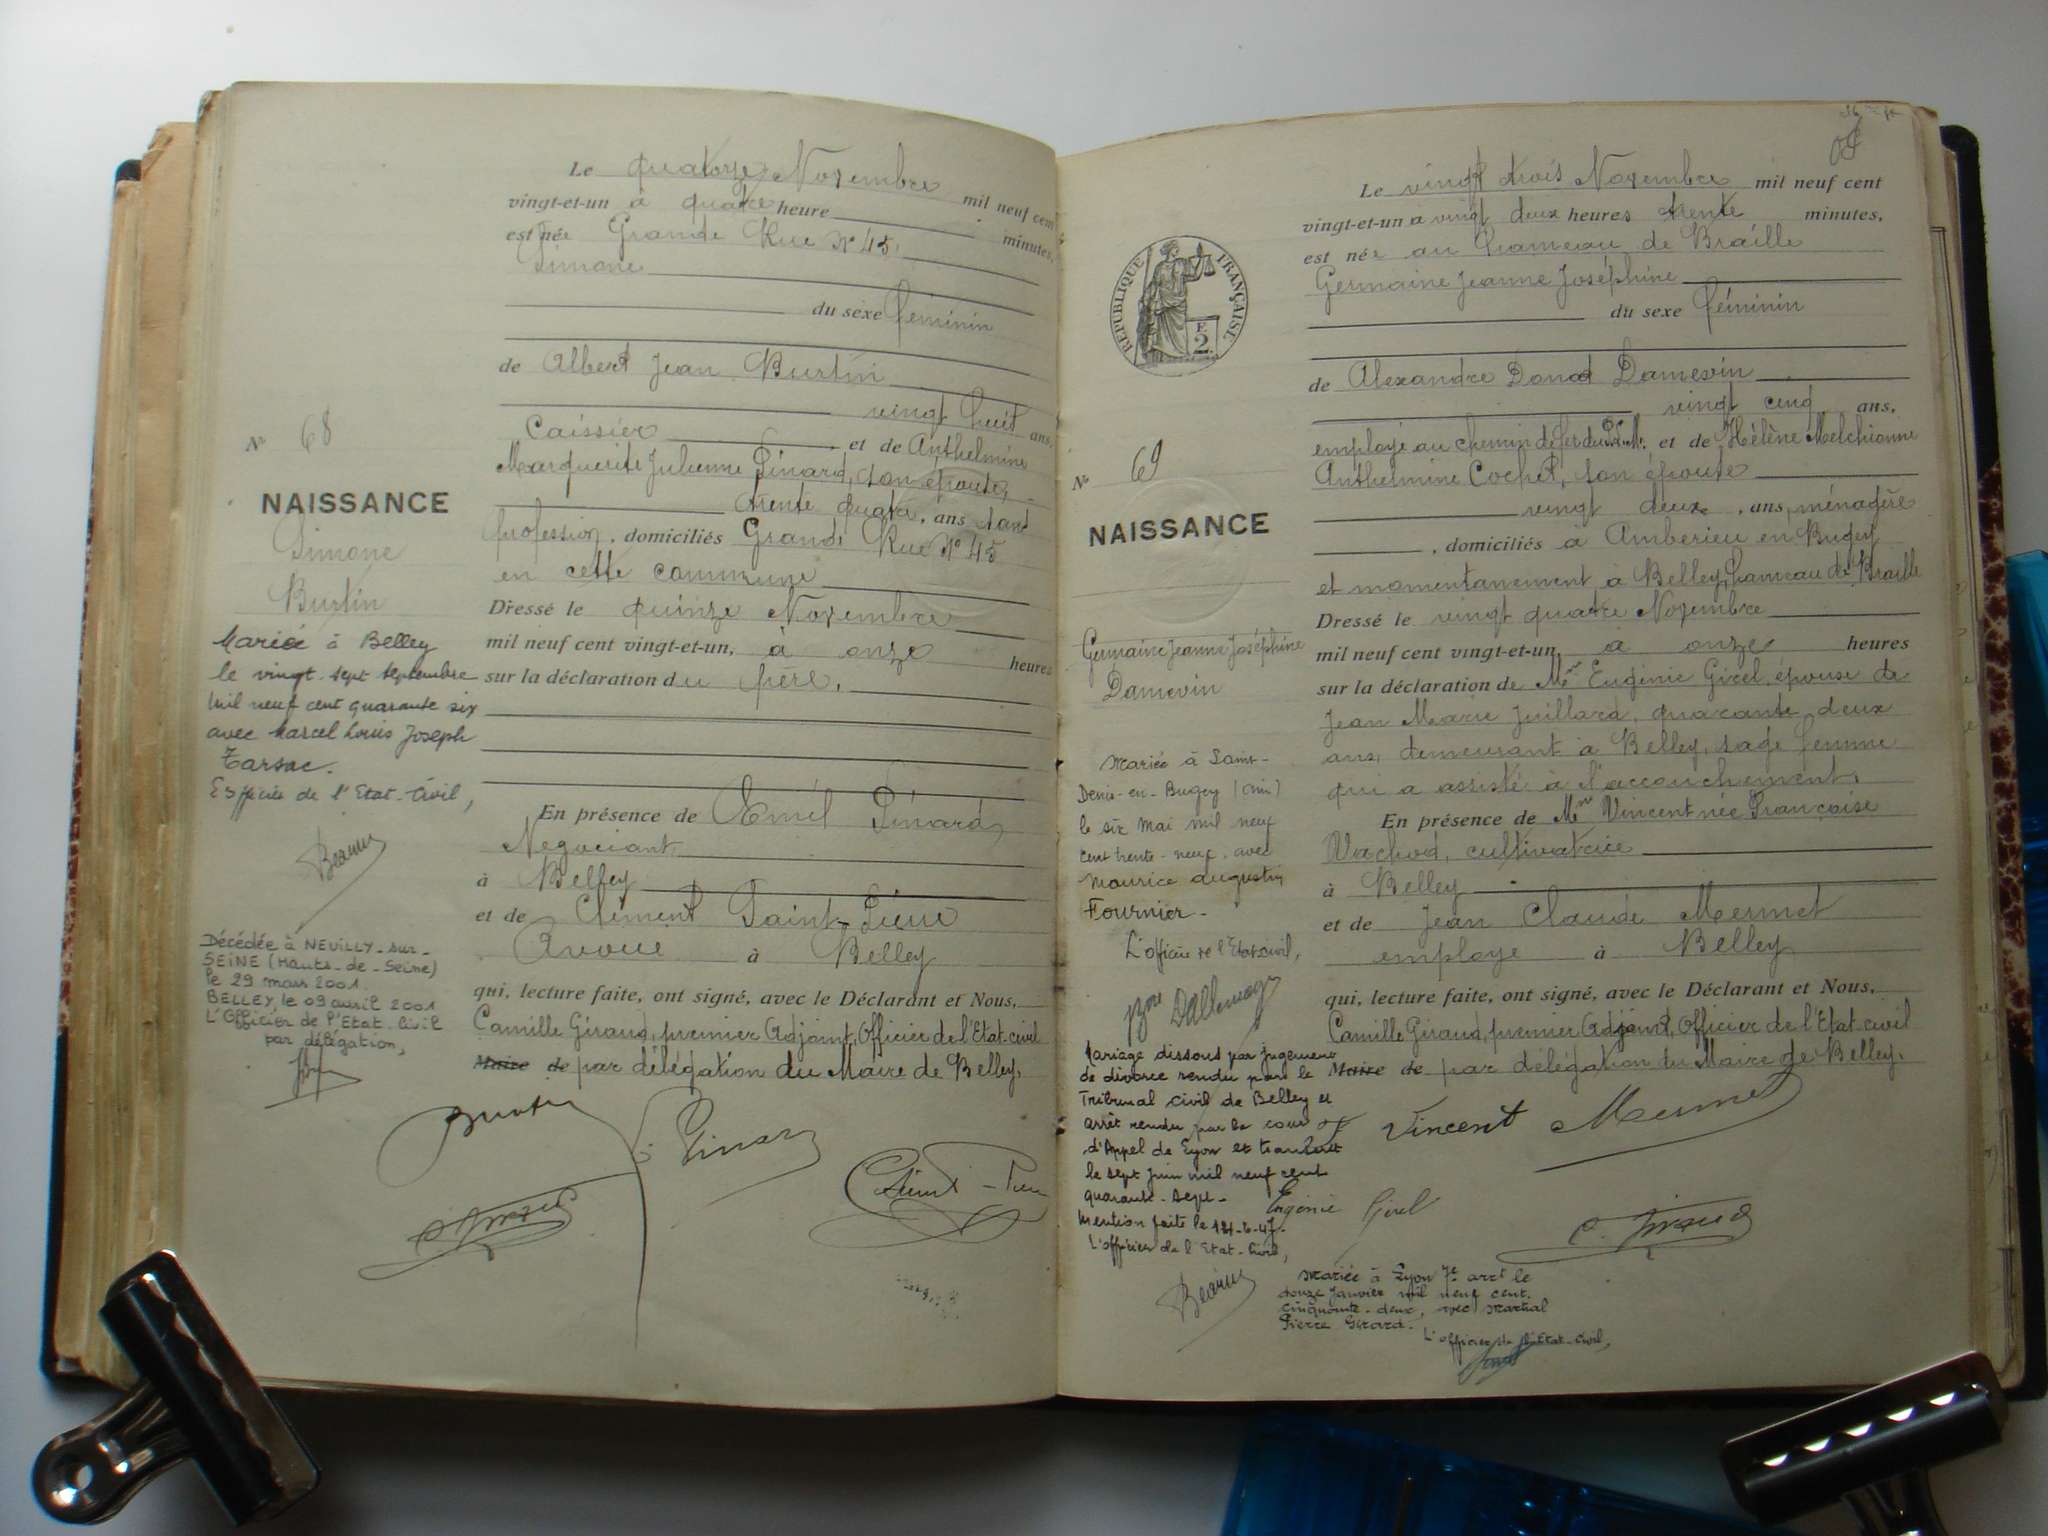 Le quatorze Novembre mil neuf cent
vingt-et-un à quatre heure minutes,
est née Grande Rue N° 45.
Simone
du sexe féminin
de Albert Jean Burtin
vingt huit ans,
Caissier et de Anthelmine
Marguerite Julienne Pinard, son épouse,
trente quatre, ans, sans
profession, domiciliés Grande Rue N° 45
en cette commune
Dressé le quinze Novembre
mil neuf cent vingt-et-un, à onze heures
sur la déclaration du père.
En présence de Pinard
Négociant
à Belley
et de Clément Saint-Pierre
Avoué à Belley
qui, lecture faite, ont signé, avec le Déclarant et Nous,
Camille Giraud, premier Adjoint, Officier de l'Etat-civil
Maire de par délégation du Maire de Belley.
N° 68
NAISSANCE
Simone
Burtin
Mariée à Belley
le vingt-sept septembre
mil neuf cent quarante six
avec Marcel Louis Joseph
Tarsac.
Officier de l'Etat-Civil,
Décédée à NEUILLY-sur-
SEINE (Hauts-de-Seine)
le 29 mars 2001.
BELLEY, le 09 avril 2001
L'Officier de l'Etat-Civil
par délégation,
Burtin
Pinard
Le vingt trois Novembre mil neuf cent
vingt-et-un à vingt deux heures trente minutes,
est née au hameau de Braille
Germaine Jeanne Joséphine
du sexe féminin
de Alexandre Donat Damevin
vingt cinq ans,
employé au chemin de fer du P.L.M. et de Hélène Melchionne
Anthelmine Cochet, son épouse
vingt deux, ans, ménagère
, domiciliés à Amberieu en Bugey
et momentanement à Belley, hameau de Braille
Dressé le vingt quatre Novembre
mil neuf cent vingt-et-un, à onze heures
sur la déclaration de Me Eugénie Girel, épouse de
Jean Marie Juillard, quarante deux
ans, demeurant à Belley, sage femme
qui a assisté à l'accouchement.
En présence de Me Vincent née Françoise
Vachod, cultivatrice
à Belley
et de Jean Claude Mermet
employe à Belley
qui, lecture faite, ont signé, avec le Déclarant et Nous,
Camille Giraud, premier Adjoint, Officier de l'Etat-civil
Maire de par délégation du Maire de Belley.
RÉPUBLIQUE FRANÇAISE
2
N° 69
NAISSANCE
Germaine Jeanne Joséphine
Damevin
Mariée à Saint-
Denis-en-Bugey (Ain)
le six Mai mil neuf
cent trente-neuf, avec
Maurice Augustin
Fournier.
L'officier de l'Etat civil,
Mariage dissous par jugement
de divorce rendu par le
Tribunal Civil de Belley et
arrêt rendu par la cour
d'Appel de Lyon et transcrit
le sept juin mil neuf cent
quarante-sept.
Mention faite le
L'officier de l'Etat-Civil,
Vincent Mermet
Eugénie Girel
C. Giraud
Mariée à Lyon 7e arrt le
douze Janvier mil neuf cent
cinquante-deux, avec Martial
Pierre Girard.
L'officier de l'Etat-Civil,